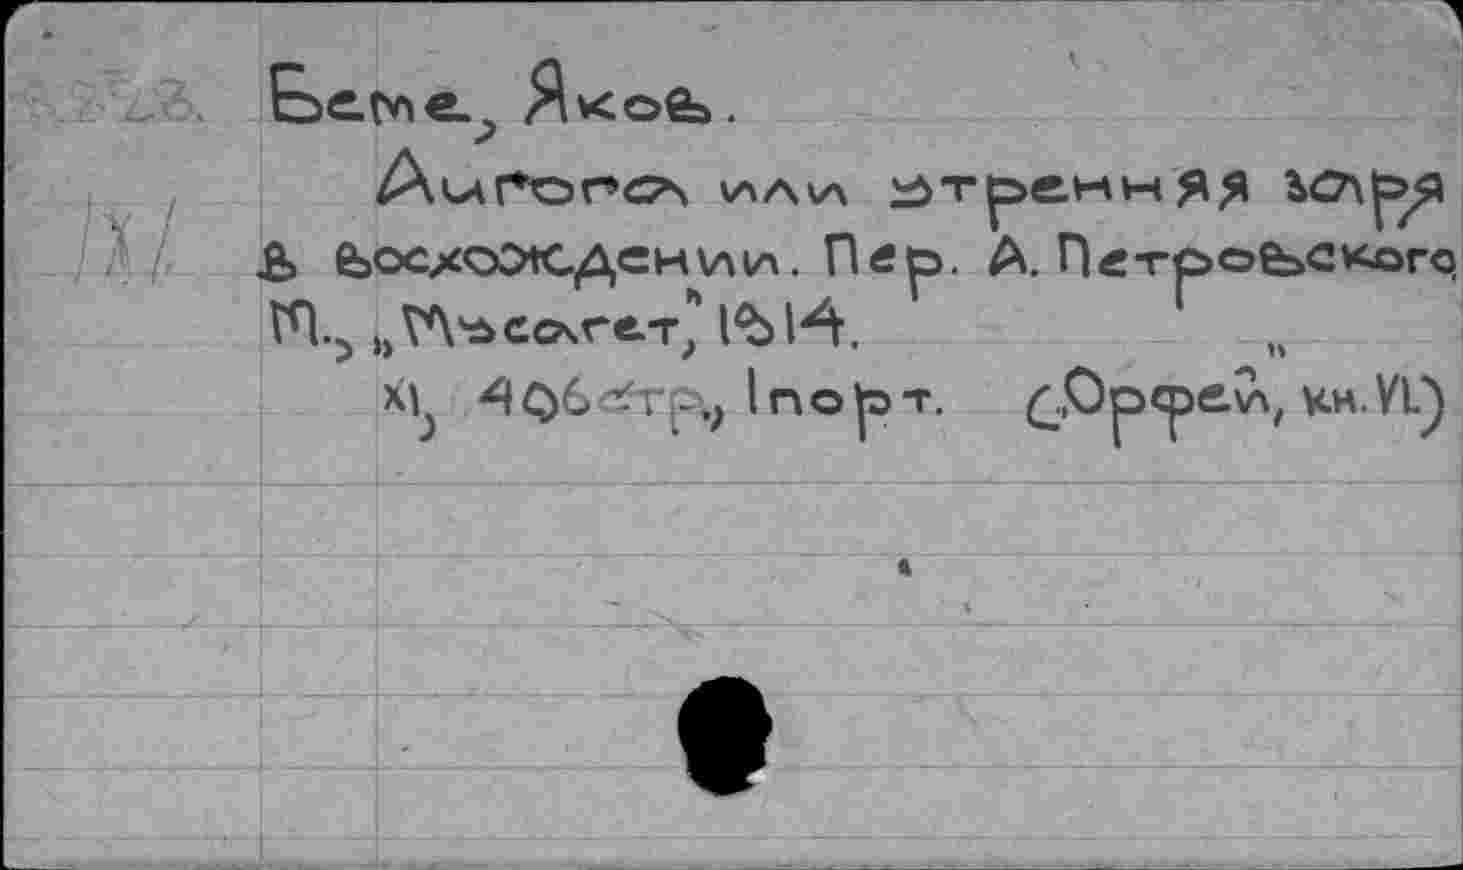 Беме, Яков.
Аигогой или утренняя заря
в восхождении. Пер. А. Петровского
М., „Мусагет", 1914.
XI, 406 стр., 1 порт. („Орфей", кн. VI.)